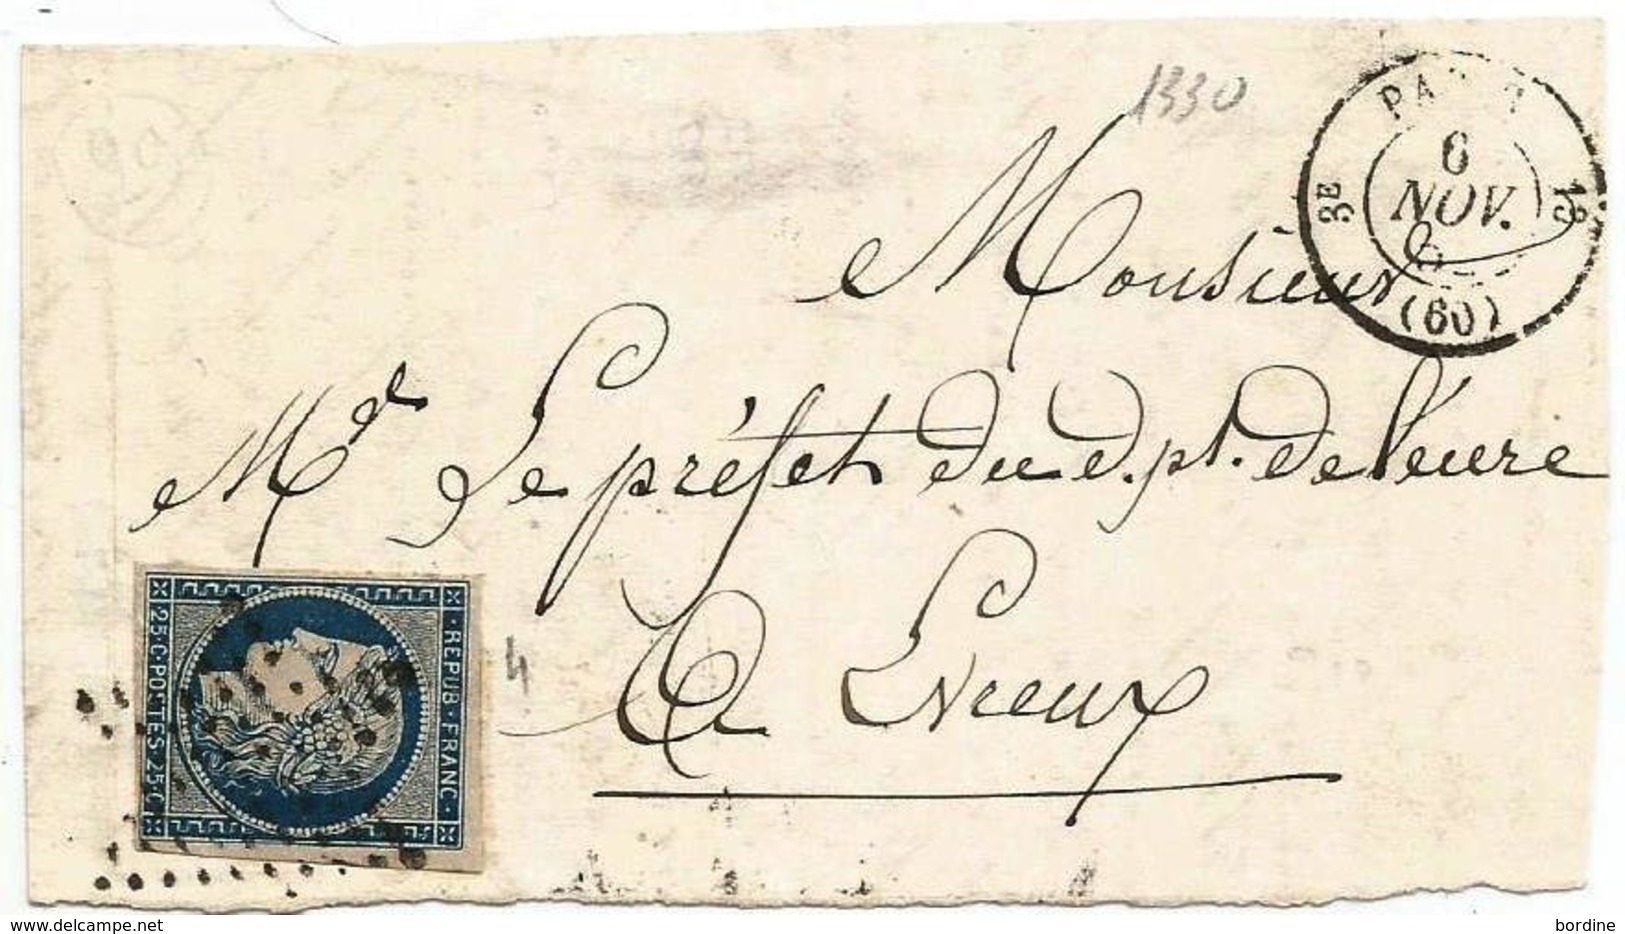 1330
PARIS
3E
6
NOV.
(60)
Monsieur
Md Le préfet du dpt. de l'eure
A Evreux
4
REPUB·FRANC·
25·C·POSTES·25·C
delcampe.net
bordine